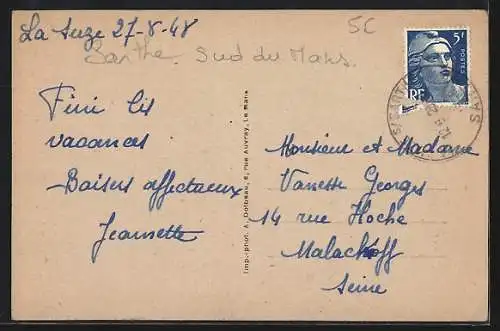 La Suze 27-8-48
5C
Sarthe. Sud du Mans.
5F
POSTES
RF
Fini les
vacances
Baisers affectueux
Jeannette
Imp.-phot. A. Dolbeau, 8, rue Auvray, Le Mans
Monsieur et Madame
Vanette Georges
14 rue Hoche
Malackoff
Seine